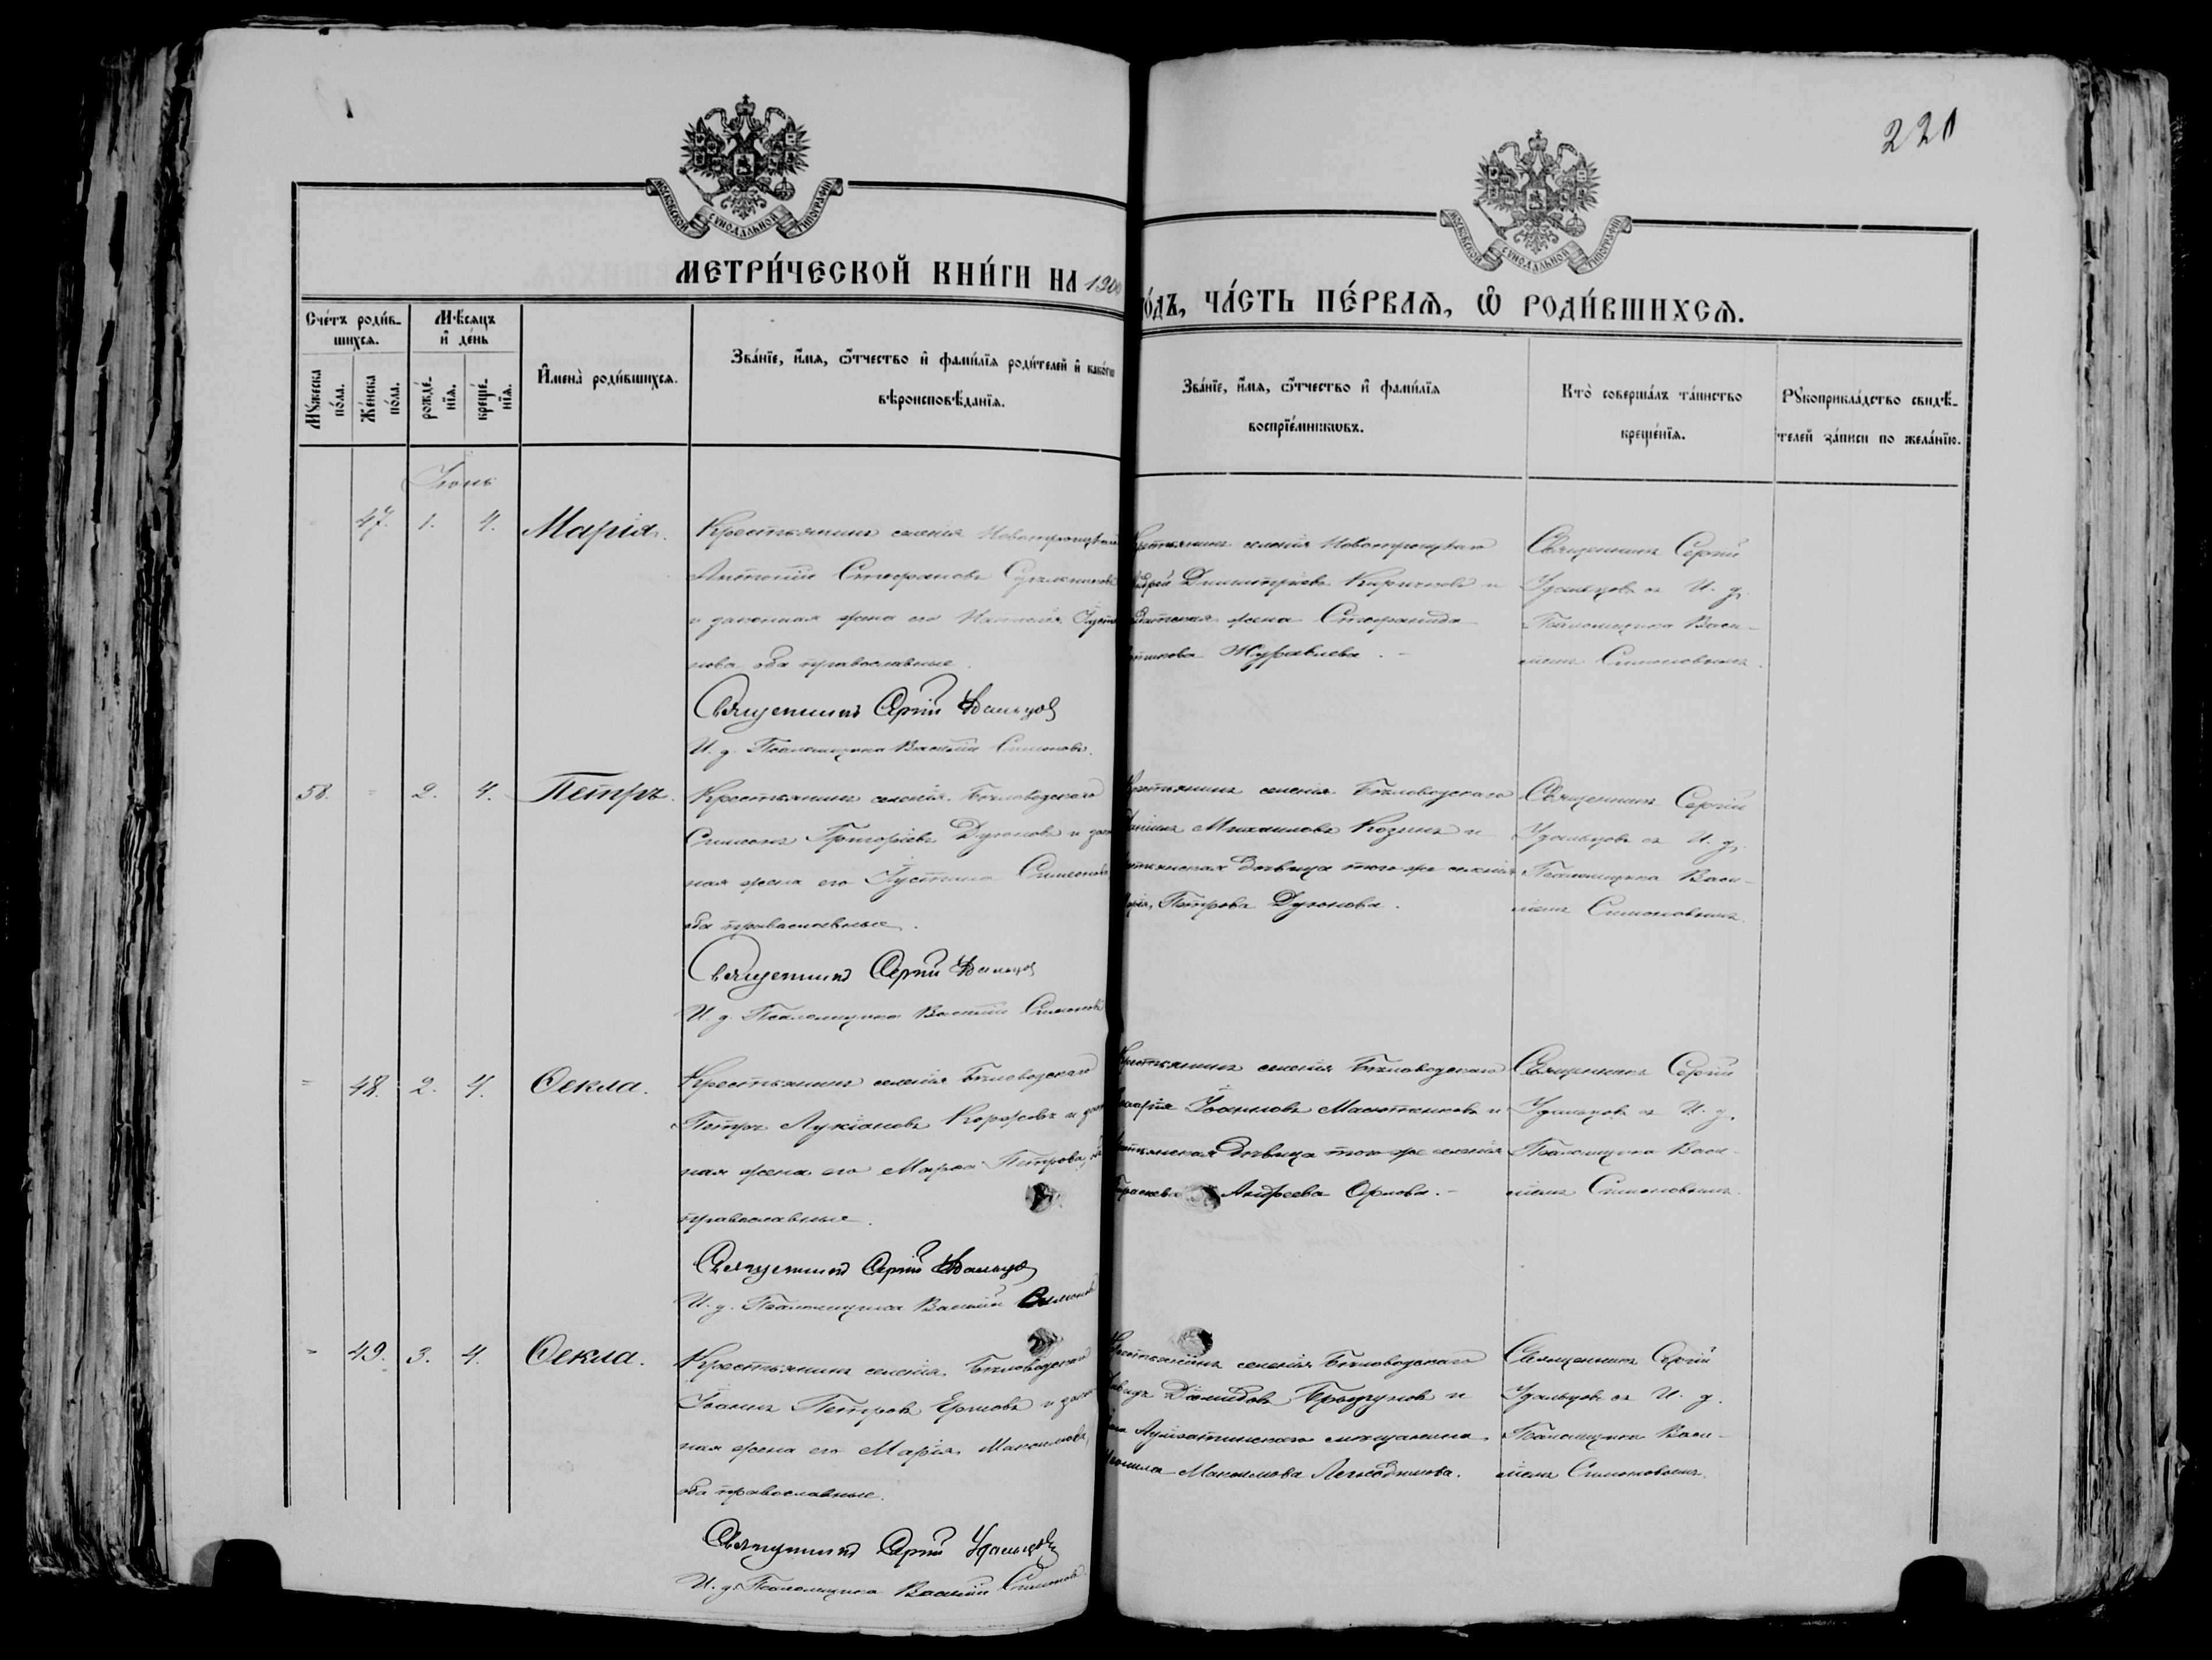 221
МОСКОВСКОЙ СѴНОДАЛЬНОЙ ТИПОГРАФІИ
МОСКОВСКОЙ СѴНОДАЛЬНОЙ ТИПОГРАФІИ
МЕТРИ́ЧЕСКОЙ КНИ́ГИ НА 1900
о́дъ, ЧА́СТЬ ПЕ́РВАѦ, Ѽ РОДИ́ВШИХСѦ.
Сче́тъ роди́в-
шихсѧ.
Мѣ́сѧцъ
и҆ де́нь
Мꙋ́жеска
по́ла.
Же́нска
по́ла.
рожде́-
нїѧ.
креще́-
нїѧ.
И҆мена̀ роди́вшихсѧ.
Зва́нїе, и҆́мѧ, ѻ҆́тчество и҆ фами́лїѧ роди́телей и҆ како́гѡ
вѣроисповѣ́данїѧ.
Зва́нїе, и҆́мѧ, ѻ҆́тчество и҆ фами́лїѧ
воспрїе́мникѡвъ.
Кто̀ соверша́лъ та́инство
креще́нїѧ.
Рꙋкоприкла́дство свидѣ́-
телей за́писи по жела́нїю.
Іюнь
47. 1. 4. Марія.
Крестьянинъ селенія Новотроицкаго
Антоній Стефановъ
и законная жена его
оба православные.
Священникъ Сергій Удальцов
И. д. Псаломщика Василій Симоновъ.
селенія Новотроицкаго
Димитріевъ Киричковъ и
жена Стефанида
Журавлева. -
Священникъ Сергій
Удальцовъ съ И. д.
Псаломщика Васи-
ліемъ Симоновымъ.
58. = 2. 4. Петръ.
Крестьянинъ селенія Бѣловодскаго
Симеонъ Григоріевъ Дугоновъ и закон
ная жена его Іустина Симеонова
оба православные.
Священникъ Сергій Удальцов
И. д. Псаломщика Василій Симоновъ
селенія Бѣловодскаго
Михаиловъ Козинъ и
дѣвица того-же селенія
Петрова Дугонова.
Священникъ Сергій
Удальцовъ съ И. д.
Псаломщика Васи-
ліемъ Симоновымъ
= 48. 2. 4. Ѳекла.
Крестьянинъ селенія Бѣловодскаго
Петръ Лукіановъ Коржовъ и закон
ная жена его Марѳа Петрова,
православные.
Священникъ Сергій Удальцов
И. д. Псаломщика Василій Симонов
селенія Бѣловодскаго
Іоанновъ Масютенковъ и
дѣвица того-же селенія
Андреева Орлова. -
Священникъ Сергій
Удальцовъ съ И. д.
Псаломщика Васи-
ліемъ Симоновымъ.
= 49. 3. 4. Ѳекла.
Крестьянинъ селенія Бѣловодскаго
Іоаннъ Петровъ Ершовъ и закон
ная жена его Марія Максимова,
оба православные.
Священникъ Сергій Удальцовъ
И. д. Псаломщика Василій Симонов
селенія Бѣловодскаго
Давидовъ и
мѣщанина
Максимова
Священникъ Сергій
Удальцовъ съ И. д.
Псаломщика Васи-
ліемъ Симоновымъ.